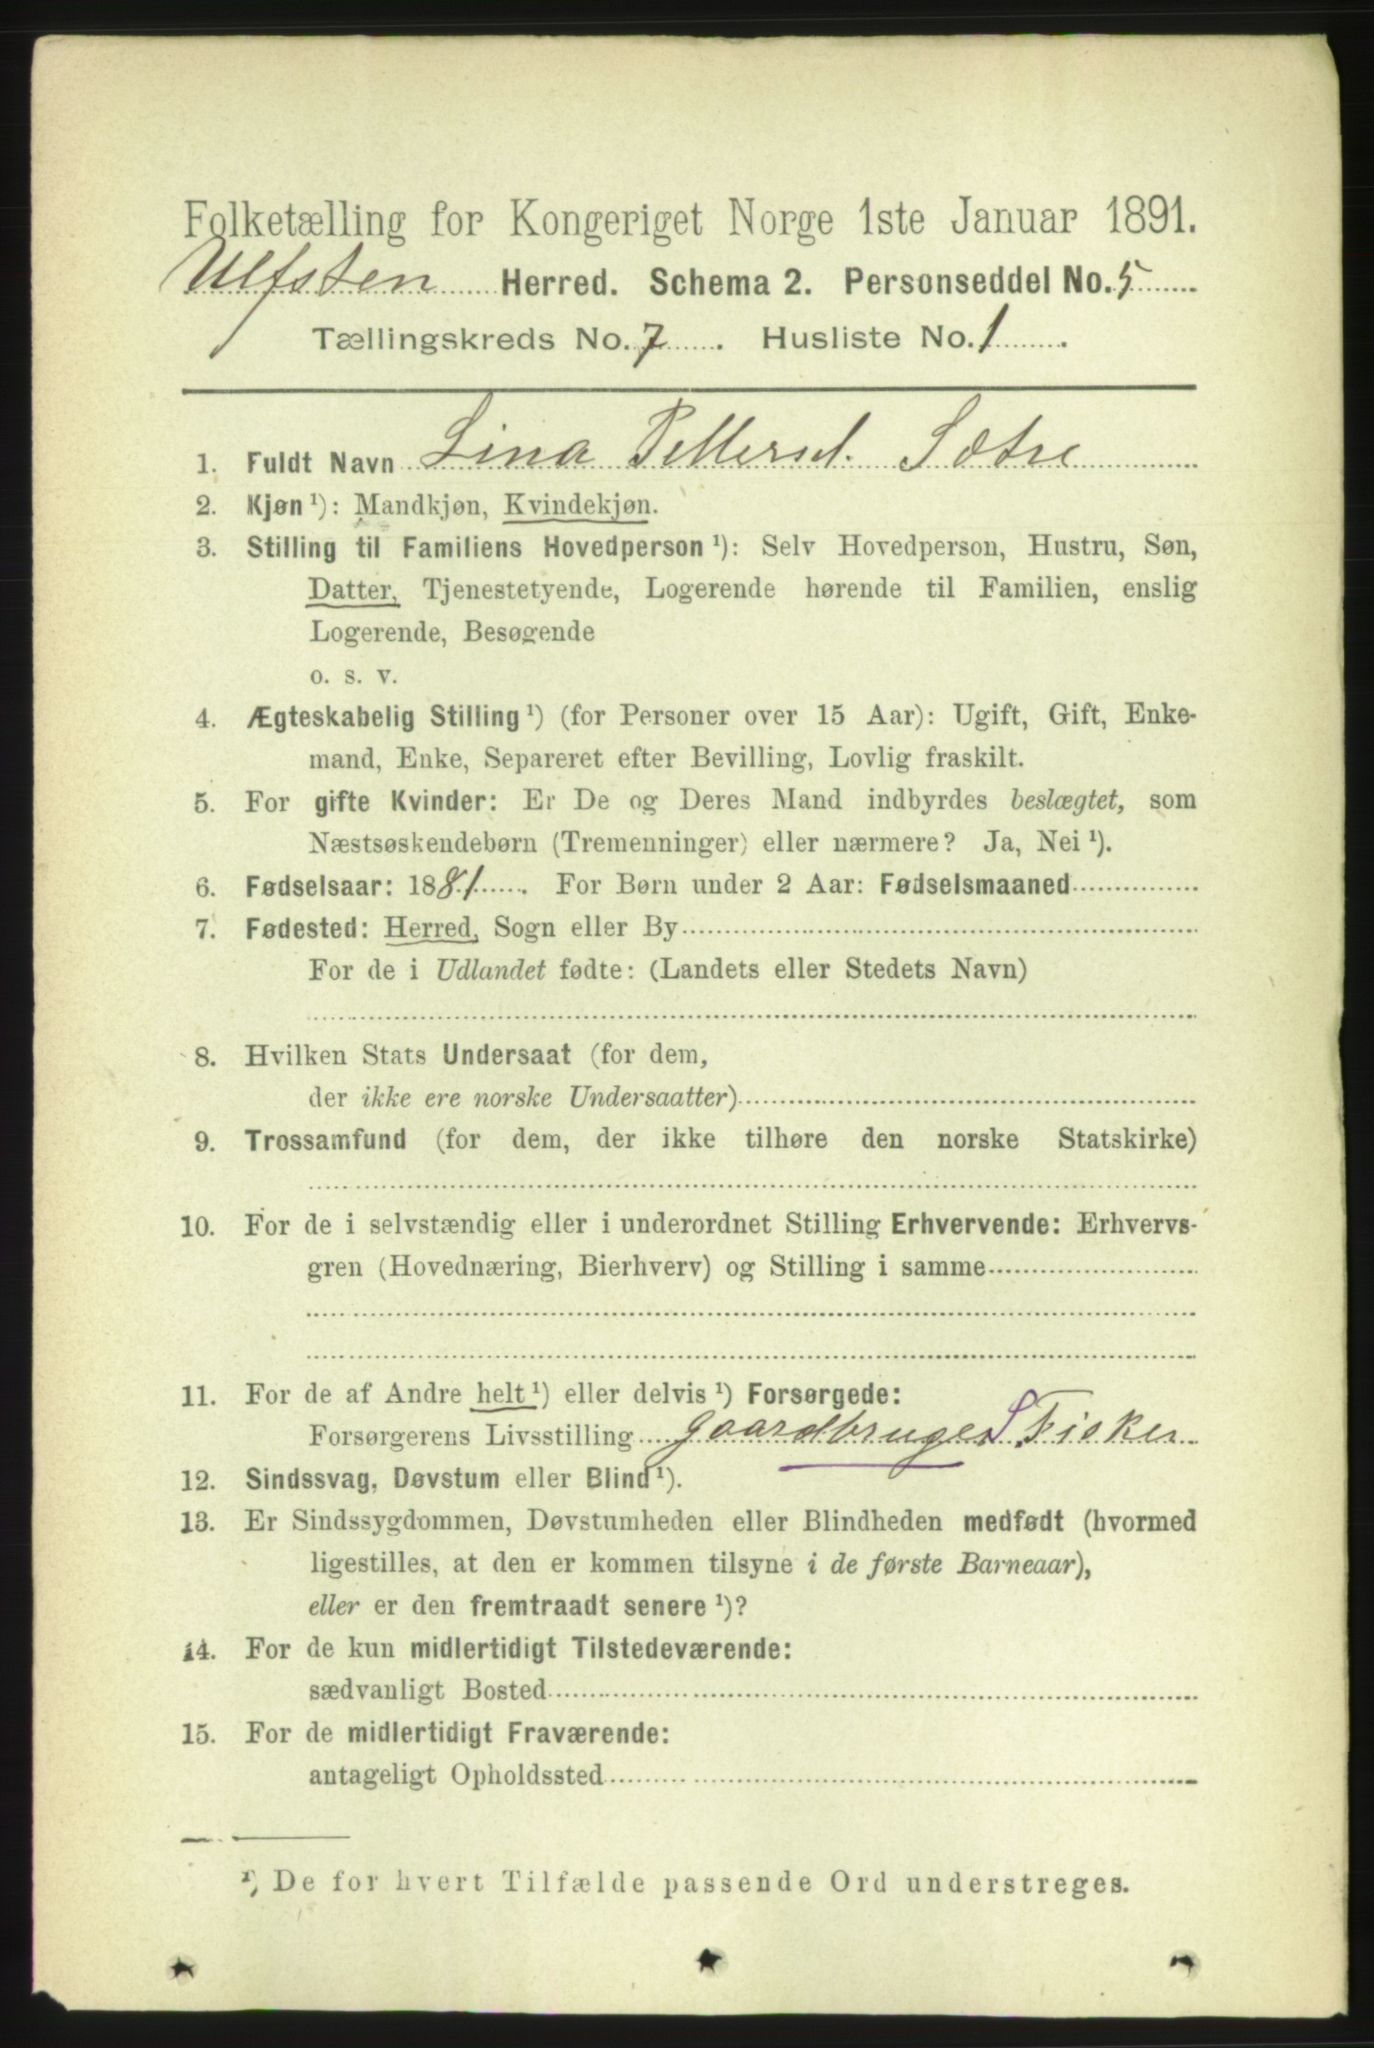 Folketælling for Kongeriget Norge 1ste Januar 1891.
Ulfsten Herred. Schema 2. Personseddel No. 5
Tællingskreds No. 7. Husliste No. 1.
1. Fuldt Navn Lina Pettersd. Sætre
2. Kjøn ¹): Mandkjøn, Kvindekjøn.
3. Stilling til Familiens Hovedperson ¹): Selv Hovedperson, Hustru, Søn,
Datter, Tjenestetyende, Logerende hørende til Familien, enslig
Logerende, Besøgende
o. s. v.
4. Ægteskabelig Stilling ¹) (for Personer over 15 Aar): Ugift, Gift, Enke-
mand, Enke, Separeret efter Bevilling, Lovlig fraskilt.
5. For gifte Kvinder: Er De og Deres Mand indbyrdes beslægtet, som
Næstsøskendebørn (Tremenninger) eller nærmere? Ja, Nei ¹).
6. Fødselsaar: 1881. For Børn under 2 Aar: Fødselsmaaned
7. Fødested: Herred, Sogn eller By
For de i Udlandet fødte: (Landets eller Stedets Navn)
8. Hvilken Stats Undersaat (for dem,
der ikke ere norske Undersaatter)
9. Trossamfund (for dem, der ikke tilhøre den norske Statskirke)
10. For de i selvstændig eller i underordnet Stilling Erhvervende: Erhvervs-
gren (Hovednæring, Bierhverv) og Stilling i samme
11. For de af Andre helt ¹) eller delvis ¹) Forsørgede:
Forsørgerens Livsstilling gaardbruger S Fisker
12. Sindssvag, Døvstum eller Blind ¹).
13. Er Sindssygdommen, Døvstumheden eller Blindheden medfødt (hvormed
ligestilles, at den er kommen tilsyne i de første Barneaar),
eller er den fremtraadt senere ¹)?
14. For de kun midlertidigt Tilstedeværende:
sædvanligt Bosted
15. For de midlertidigt Fraværende:
antageligt Opholdssted
¹) De for hvert Tilfælde passende Ord understreges.